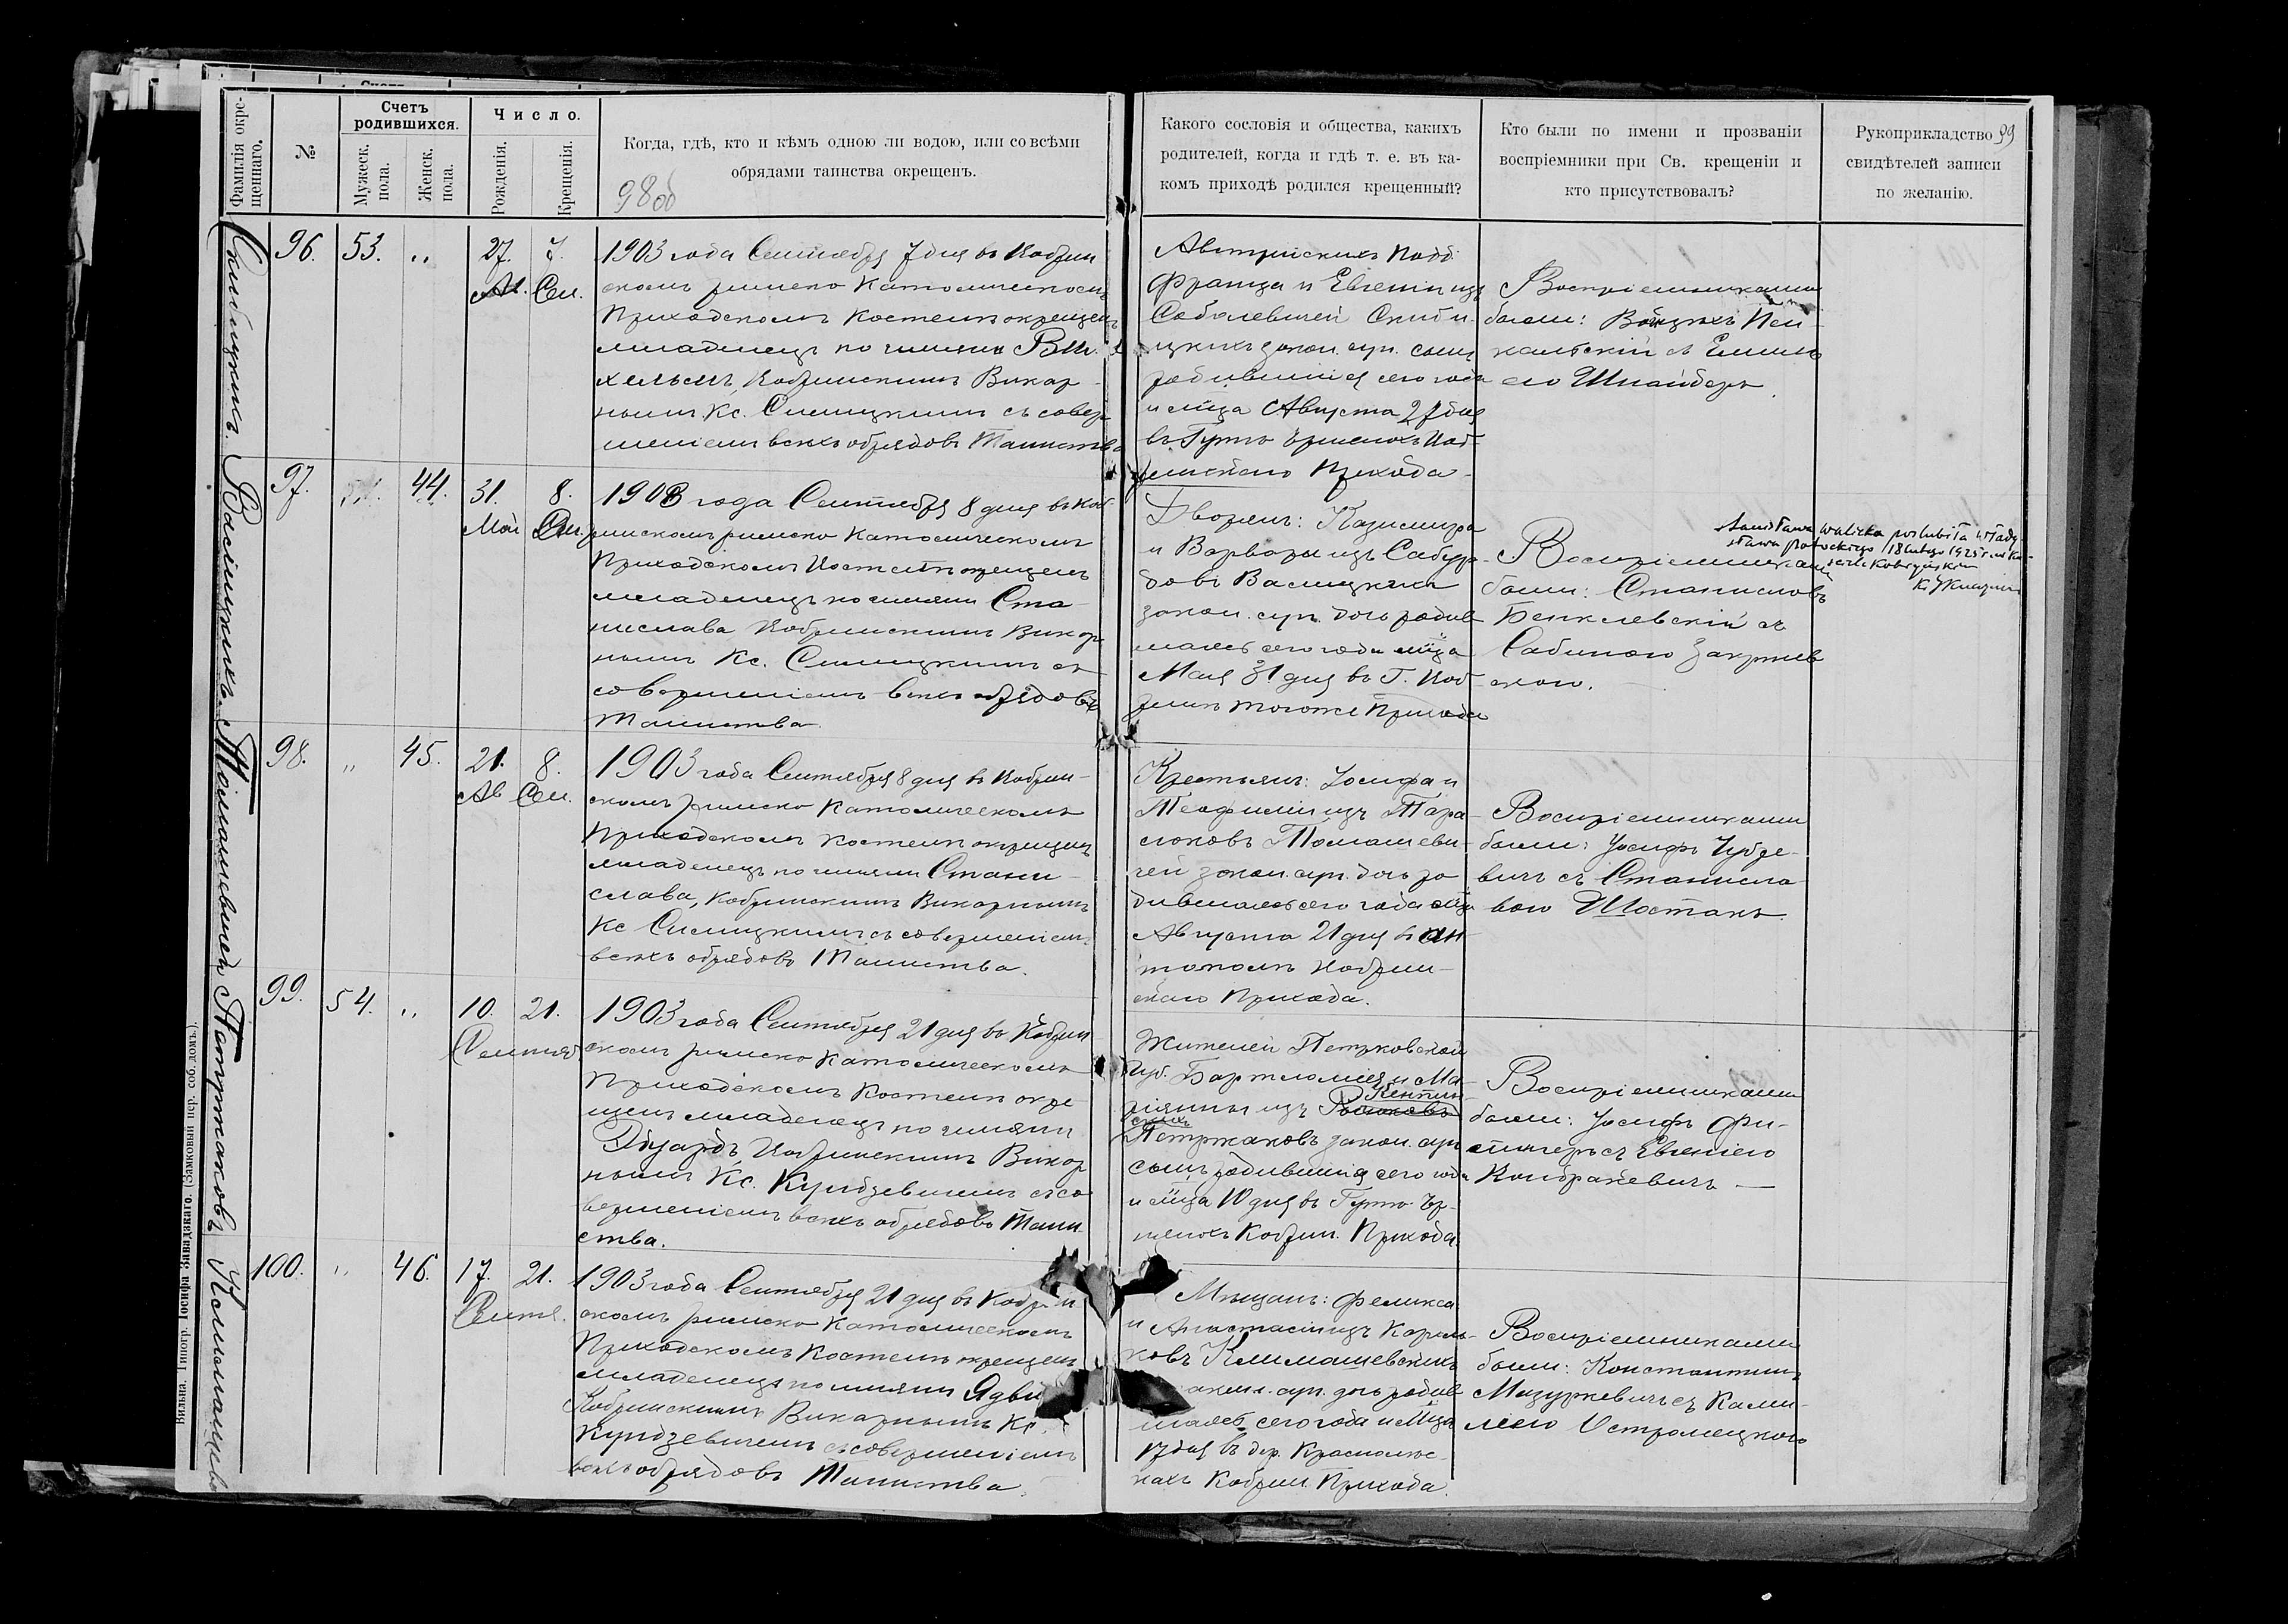 Фамилія окре-
щеннаго.
№
Счетъ
родившихся.
Мужеск.
пола.
Женск.
пола.
Число.
Рожденія.
Крещенія.
Когда, гдѣ, кто и кѣмъ одною ли водою, или со всѣми
обрядами таинства окрещенъ.
98об
Какого сословія и общества, какихъ
родителей, когда и гдѣ т. е. въ ка-
комъ приходѣ родился крещенный?
Кто были по имени и прозваніи
воспріемники при Св. крещеніи и
кто присутствовалъ?
Рукоприкладство
свидѣтелей записи
по желанію.
99
96. 53. „ 27. 7.
Ав. Сен.
1903 года Сентября 7 дня въ Кобрин
скомъ римско Католическомъ
Приходскомъ Костелѣ окрещенъ
младенецъ по имени Виль
хельмъ, Кобринскимъ Викар-
нымъ Кс. Сислицкимъ съ совер
шеніемъ всѣхъ обрядовъ Таинства
Австрійскихъ Подд.
Франца и Евгеніи изъ
Соболевичей Скиби-
цкихъ закон. суп. сынъ
родившійся сего года
мѣца Августа 27 дня
въ Гутѣ Коб-
ринскаго Прихода
Воспріемниками
были: Войцехъ
съ Емилі
ею Шнайдеръ.
Скибицкихъ.
97. 44. 31. 8.
Мая Сен.
1903 года Сентября 8 дня въ Коб-
ринскомъ римско Католическомъ
Приходскомъ Костелѣ окрещенъ
младенецъ по имени Ста-
нислава Кобринскимъ Викар
нымъ Кс. Сислицкимъ съ
совершеніемъ всѣхъ обрядовъ
Таинства
Дворянъ: Казимира
и Варвары изъ Сабур-
довъ Валицкихъ
закон. суп. дочь родив
шаяся сего года мѣца
Мая 31 дня въ Г. Коб-
ринѣ того же Прихода
Воспріемниками
были: Станиславъ
Бенклевскій съ
Сабиною Закржев
скою.
Stanisława Walicka poślubiła Włady-
sława 18 lutego 1925 r. w Ko-
ściele Kobryńskim
Валицкихъ.
98. „ 45. 21. 8.
Ав Сен.
1903 года Сентября 8 дня въ Кобрин-
скомъ римско Католическомъ
Приходскомъ Костелѣ окрещенъ
младенецъ по имени Стани-
слава, Кобринскимъ Викарнымъ
Кс Сислицкимъ съ совершеніемъ
всѣхъ обрядовъ Таинства.
Крестьянъ: Іосифа и
Теофиліи изъ Тара-
сюковъ Томашеви-
чей закон. суп. дочь ро
дившаяся сего года мѣца
Августа 21 дня въ Ан-
тополѣ Кобрин-
скаго Прихода.
Воспріемниками
были: Іосифъ Чубре-
вичъ съ Станисла
вою Шостакъ.
Томашевичей
99. 54. „ 10. 21.
Сентяб
1903 года Сентября 21 дня въ Кобрин
скомъ римско Католическомъ
Приходскомъ Костелѣ окре-
щенъ младенецъ по имени
Эдуардъ, Кобринскимъ Викар
нымъ Кс. Кундзевичемъ съ со
вершеніемъ всѣхъ обрядовъ Таин-
ства.
Жителей Петрковской
Губ. Бартломія и Ма-
ріянны изъ
Петржаковъ закон. суп
сынъ родившійся сего года
мѣца 10 дня въ Гутѣ
Кобрин. Прихода.
Воспріемниками
были: Іосифъ Фи-
съ Евгеніею
Кондракевичъ —
Петржаковъ
100. „ 46. 17. 21.
Сентя.
1903 года Сентября 21 дня въ Кобрин
скомъ римско Католическомъ
Приходскомъ Костелѣ окрещенъ
младенецъ по имени Ядви
Кобринскимъ Викарнымъ Кс.
Кундзевичемъ съ совершеніемъ
всѣхъ обрядовъ Таинства.
Мѣщанъ: Феликса
и Анастасіи изъ Король-
ковъ Климашевскихъ
закон. суп. дочь родив
шаяся сего года мѣца
17 дня въ дер. Красноли-
кахъ Кобрин. Прихода.
Воспріемниками
были: Константинъ
Мазуркевичъ съ Ками-
лею Остромецкою
Вильна. Типогр. Іосифа Завадзкаго. (Замковый пер. соб. домъ.).